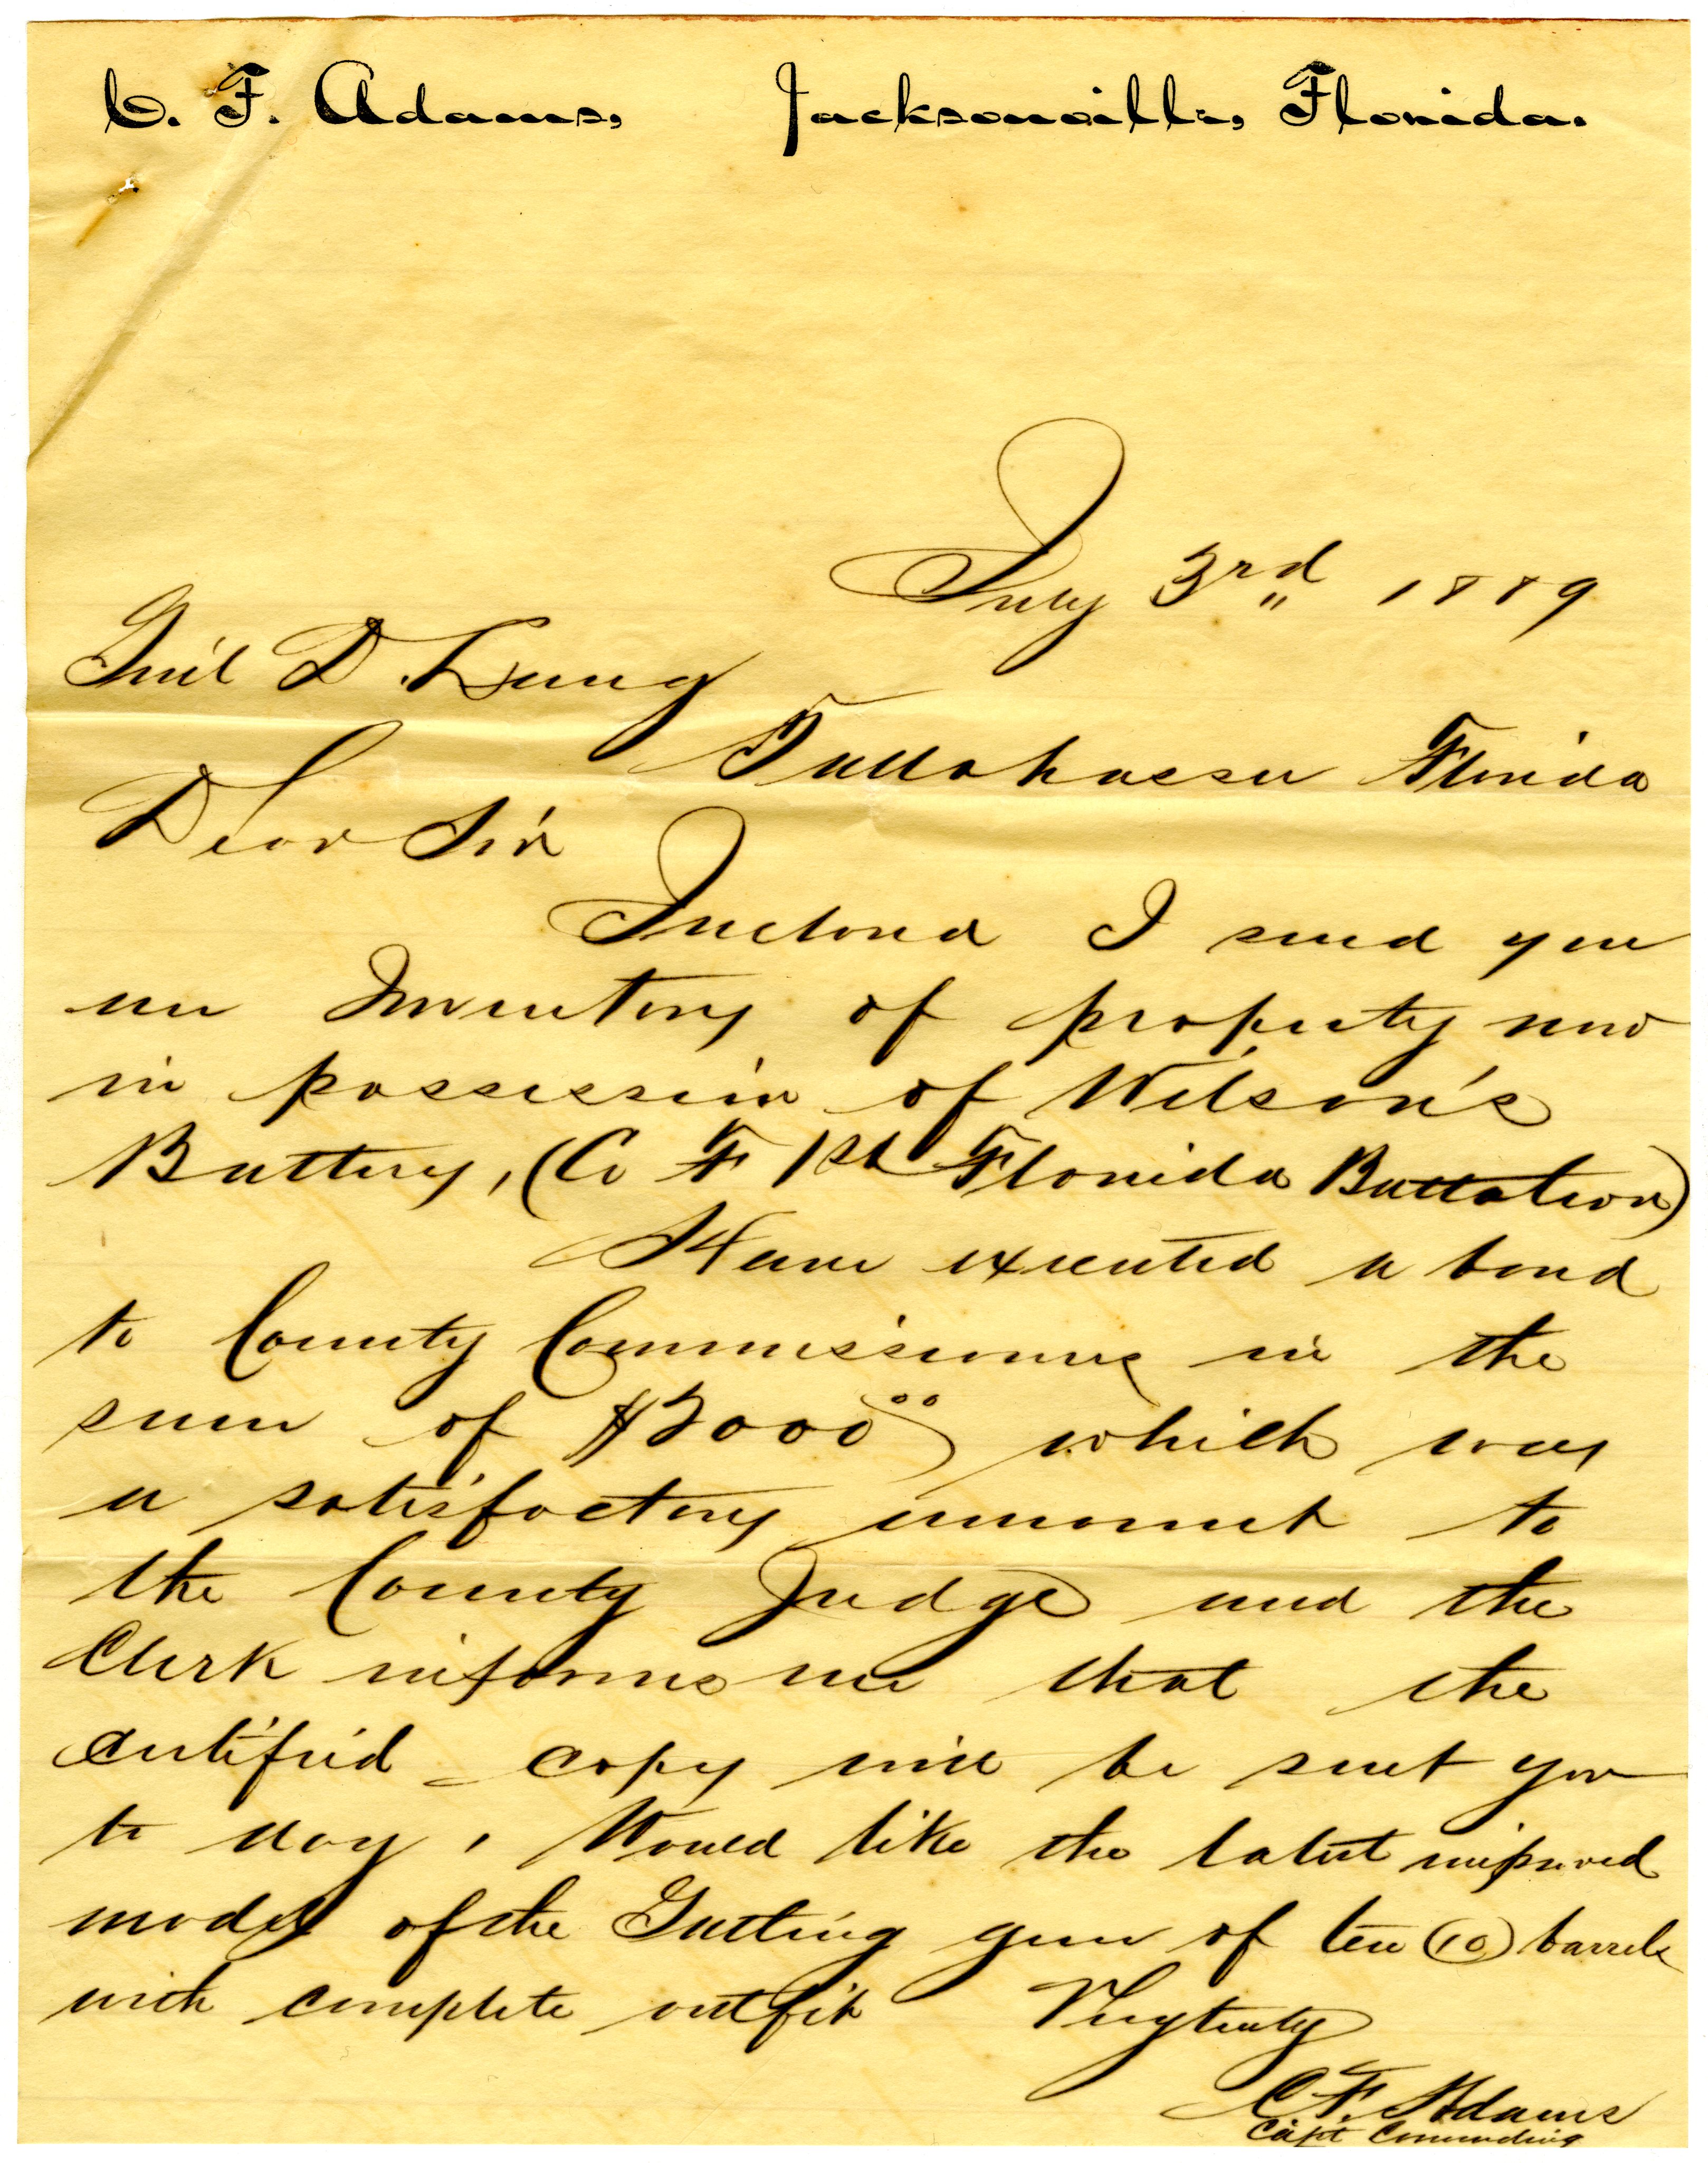 C. F. Adams, Jacksonville, Florida.
July 3rd 1889
Gen'l D. Lang
Tallahassee Florida
Dear Sir
Inclosed I send you
an Inventory of property now
in possession of Wilson's
Battery, (Co F 1st Florida Battalion)
Have executed a bond
to County Commissioners in the
sum of $3000 00 which was
a satisfactory amount to
the County Judge and the
Clerk informs me that the
certified copy will be sent you
to day, Would like the latest improved
model of the Gatling gun of ten (10) barrels
with complete outfit Very truly
C. F. Adams
Capt Commanding